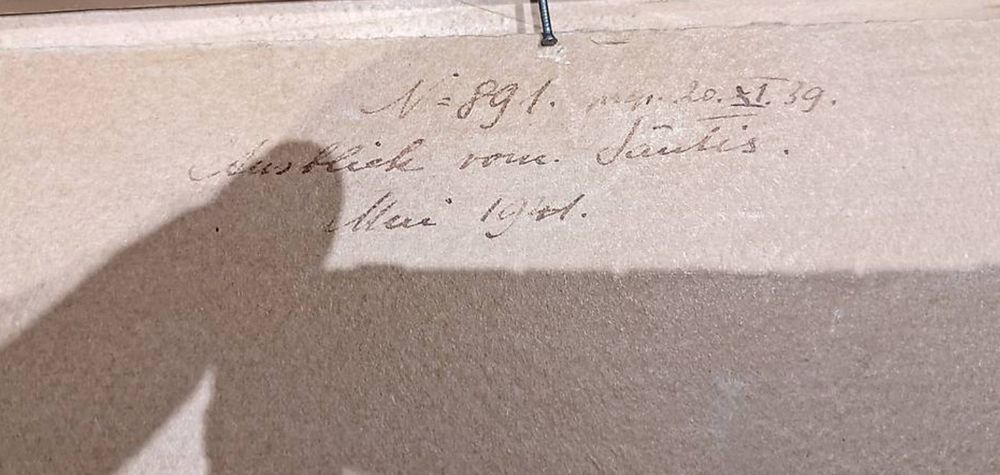 N= 891. präp. 20. XI. 39.
Ausblick vom. Säntis.
Mai 1941.